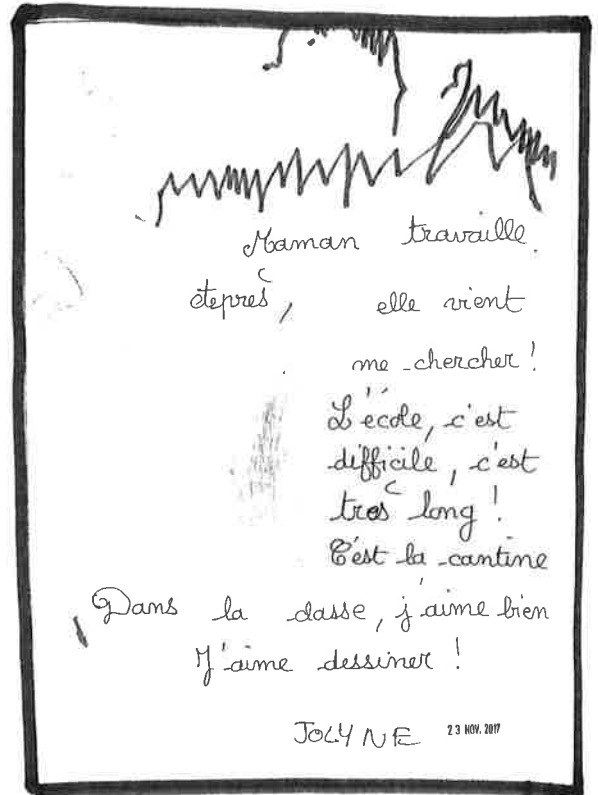 Maman travaille.
Après, elle vient
me chercher !
L'école, c'est
difficile, c'est
très long !
C'est la cantine
Dans la classe, j'aime bien
J'aime dessiner !
JOLYNE 23 NOV. 2017